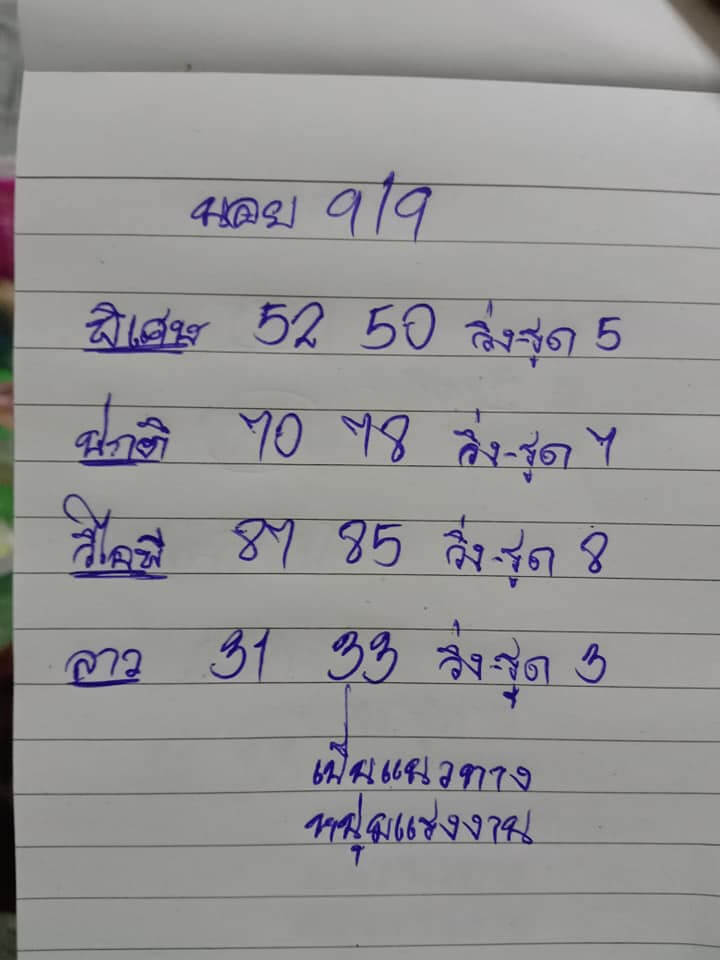 นอย 9/9
พิเศษ 52 50 วิ่ง-รูด 5
ปกติ 70 78 วิ่ง-รูด 7
วีไอพี 87 85 วิ่ง-รูด 8
ลาว 31 33 วิ่ง-รูด 3
เป็นแนวทาง
หนุ่มแรงงาน